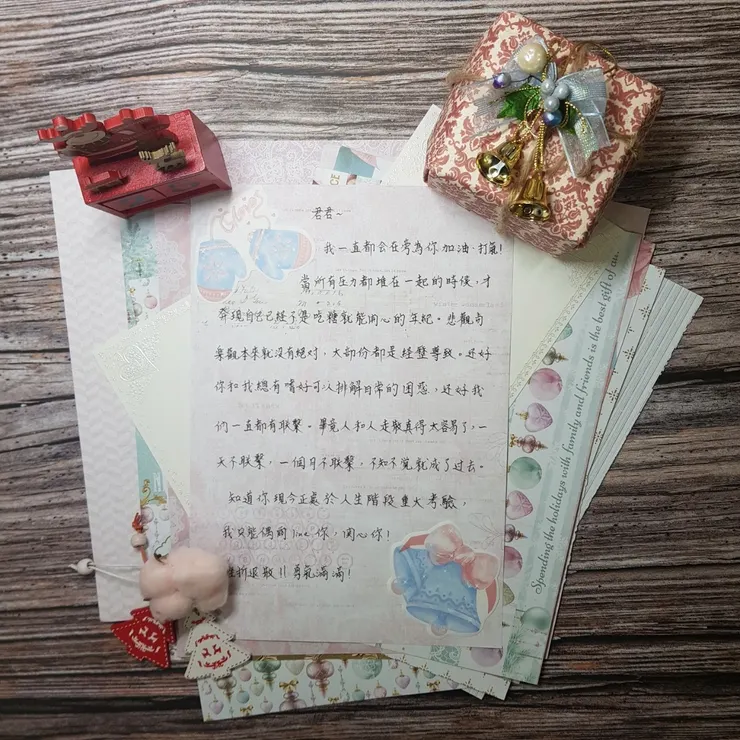 君君~
我一直都会在旁為你加油、打氣!
當所有压力都堆在一起的時候,才
發現自己已經不是吃糖就能開心的年紀。悲觀與
樂觀本來就沒有絕对,大部份都是經歷導致。还好
你和我總有嗜好可以排解日常的困惑,还好我
们一直都有联繫。畢竟人和人走散真得太容易了,一
天不联繫,一個月不联繫,不知不覺就成了过去。
知道你現今正處於人生階段重大考驗,
我只能偶爾line你,関心你!
挫折退散!!勇氣滿滿!
Spending the holidays with family and friends is the best gift of